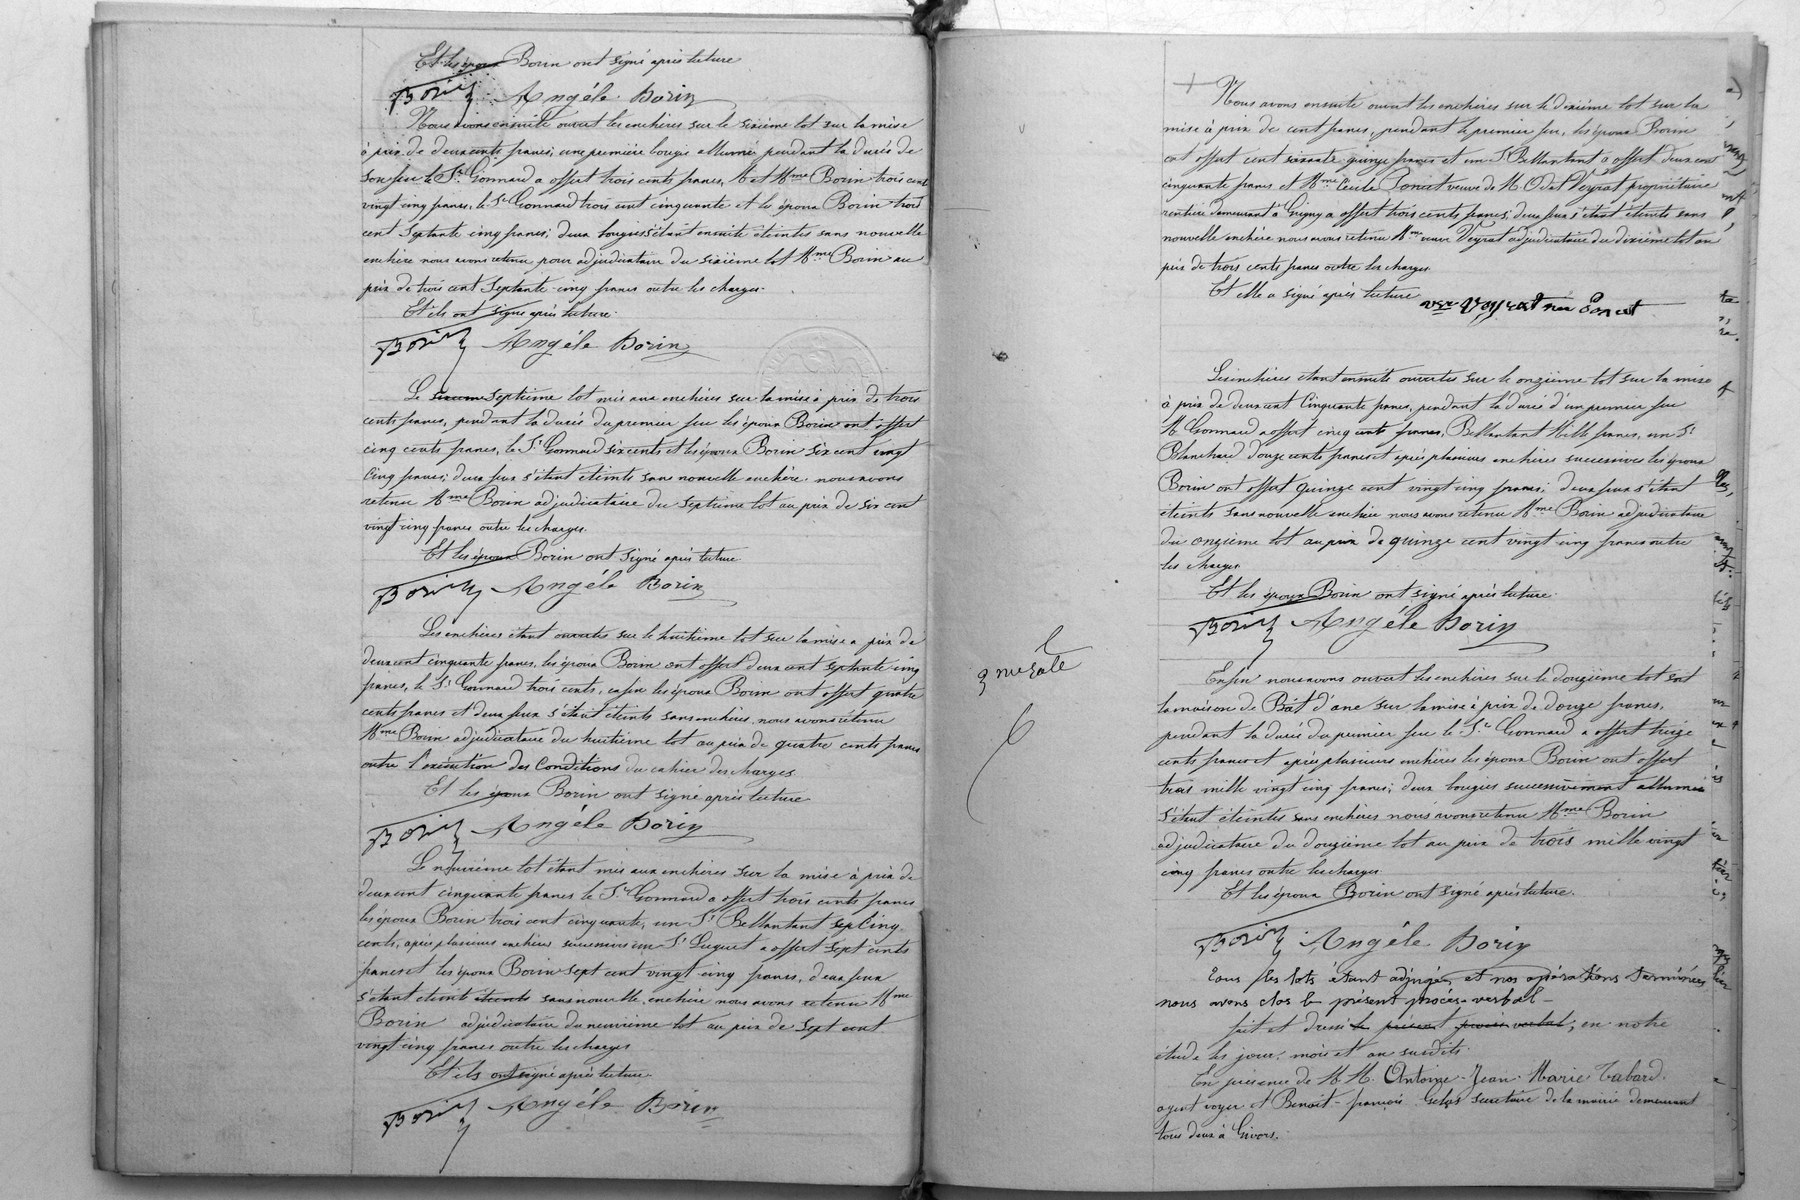 Et les époux Borin ont signé après lecture
Borin Angéle Borin
Nous avons ensuite ouvert les enchères sur le sixième lot sur la mise
à prix de deux cents francs; une première bougie allumée pendant la durée de
son feu le Sr Gonnard a offert trois cents francs, M et Mme Borin trois cent
vingt cinq francs, le Sr Gonnard trois cent cinquante et les époux Borin trois
cent septante cinq francs; deux bougies s'étant ensuite éteintes sans nouvelle
enchère nous avons retenu pour adjudicataire du sixième lot Mme Borin au
prix de trois cent septante-cinq francs outre les charges.
Et ils ont signé après lecture.
Borin Angéle Borin
Le septième lot mis aux enchères sur la mise à prix de trois
cents francs, pendant la durée du premier feu les époux Borin ont offert
cinq cents francs, le Sr Gonnard six cents et les époux Borin six cent vingt
cinq francs; deux feux s'étant éteints sans nouvelle enchère nous avons
retenu Mme Borin adjudicataire du septième lot au prix de six cent
vingt cinq francs outre les charges.
Et les époux Borin ont signé après lecture
Borin Angéle Borin
Les enchères étant ouvertes sur le huitième lot sur la mise a prix de
deux cent cinquante francs, les époux Borin ont offert deux cent septante-cinq
francs, le Sr Gonnard trois cents, enfin les époux Borin ont offert quatre
cents francs et deux feux s'étant éteints sans enchères, nous avons retenu
Mme Borin adjudicataire du huitième lot au prix de quatre cents francs
outre l'exécution des Conditions du cahier des charges
Et les époux Borin ont signé après lecture
Borin Angéle Borin
Le neuvième lot étant mis aux enchères sur la mise à prix de
deux cent cinquante francs le Sr Gonnard a offert trois cents francs
les époux Borin trois cent cinquante, un Sr Bellantant sept cinq
cents, après plusieurs enchères successives un Sr Luquet a offert sept cents
francs et les époux Borin sept cent vingt-cinq francs, deux feux
s'étant éteint éteints sans nouvelle enchère nous avons retenu Mme
Borin adjudicataire du neuvième lot au prix de sept cent
vingt-cinq francs outre les charges
Et ils ont signé après lecture
Borin Angéle Borin
3 mr rate
Nous avons ensuite ouvert les enchères sur le dixième lot sur la
mise à prix de cent francs, pendant le premier feu, les époux Borin
ont offert cent soixante quinze francs et un Sr Bellantant a offert deux cent
cinquante francs et Mme Cécile Poncet veuve de M. Odet Veyrat propriétaire
rentière demeurant à Grigny a offert trois cents francs; deux feux s'étant éteints sans
nouvelle enchère nous avons retenu Mme veuve Veyrat adjudicataire du dixième lot au
prix de trois cents francs outre les charges.
Et elle a signé après lecture vve Veyrat née Poncet
Les enchères étant ensuite ouvertes sur le onzième lot sur la mise
à prix de deux cent Cinquante francs, pendant la durée d'un premier feu
M. Gonnard a offert cinq cents francs, Bellantant Mille francs, un Sr
Blanchard douze cents francs et après plusieurs enchères successives les époux
Borin ont offert quinze cent vingt cinq francs; deux feux s'étant
éteints sans nouvelle enchère nous avons retenu Mme Borin adjudicataire
du onzième lot au prix de quinze cent vingt cinq francs outre
les charges
Et les époux Borin ont signé après lecture.
Borin Angéle Borin
Enfin nous avons ouvert les enchères sur le douzième lot soit
la maison de Bât d'ane sur la mise à prix de douze francs.
pendant la durée du premier feu le Sr Gonnard a offert treize
cents francs et après plusieurs enchères les époux Borin ont offert
trois mille vingt cinq francs; deux bougies successivement allumées
s'étant éteintes sans enchères nous avons retenu Mme Borin
adjudicataire du douzième lot au prix de trois mille vingt
cinq francs outre les charges
Et les époux Borin ont signé après lecture.
Borin Angéle Borin
Tous les lots étant adjugés, et nos opérations terminées
nous avons clos le présent procès-verbal-
fait et dressé le présent procès verbal, en notre
étude les jour, mois et an susdits.
En présence de M.M. Antoine-Jean-Marie Tabard
agent voyer et Benoit-françois Gelas secrétaire de la mairie demeurant
tous deux à Givors.